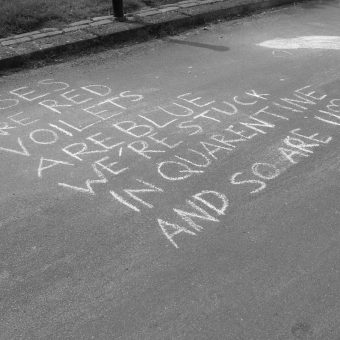 RED
VOILITS
ARE BLUE
WE'RE STUCK
IN QUARENTINE
AND SO ARE US